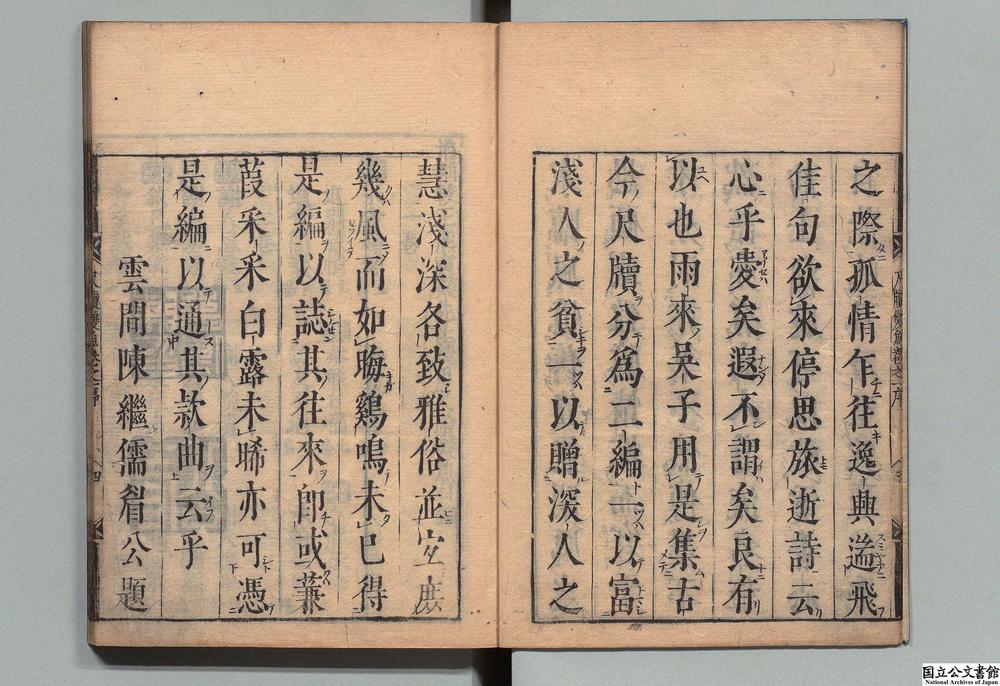 之際孤情乍往逸興遄飛
佳句欲來停思旅逝詩云
心乎愛矣遐不謂矣良有
以也雨來吳子用是集古
今尺牘分爲二編一以富
淺人之貧一以贈深人之
慧淺深各致雅俗並宜庶
幾風而如晦鷄鳴未已得
是編以誌其往來卽或蒹
葭采采白露未晞亦可憑
是編以通其款曲云乎
雲間陳繼儒眉公題
国立公文書館
National Archives of Japan